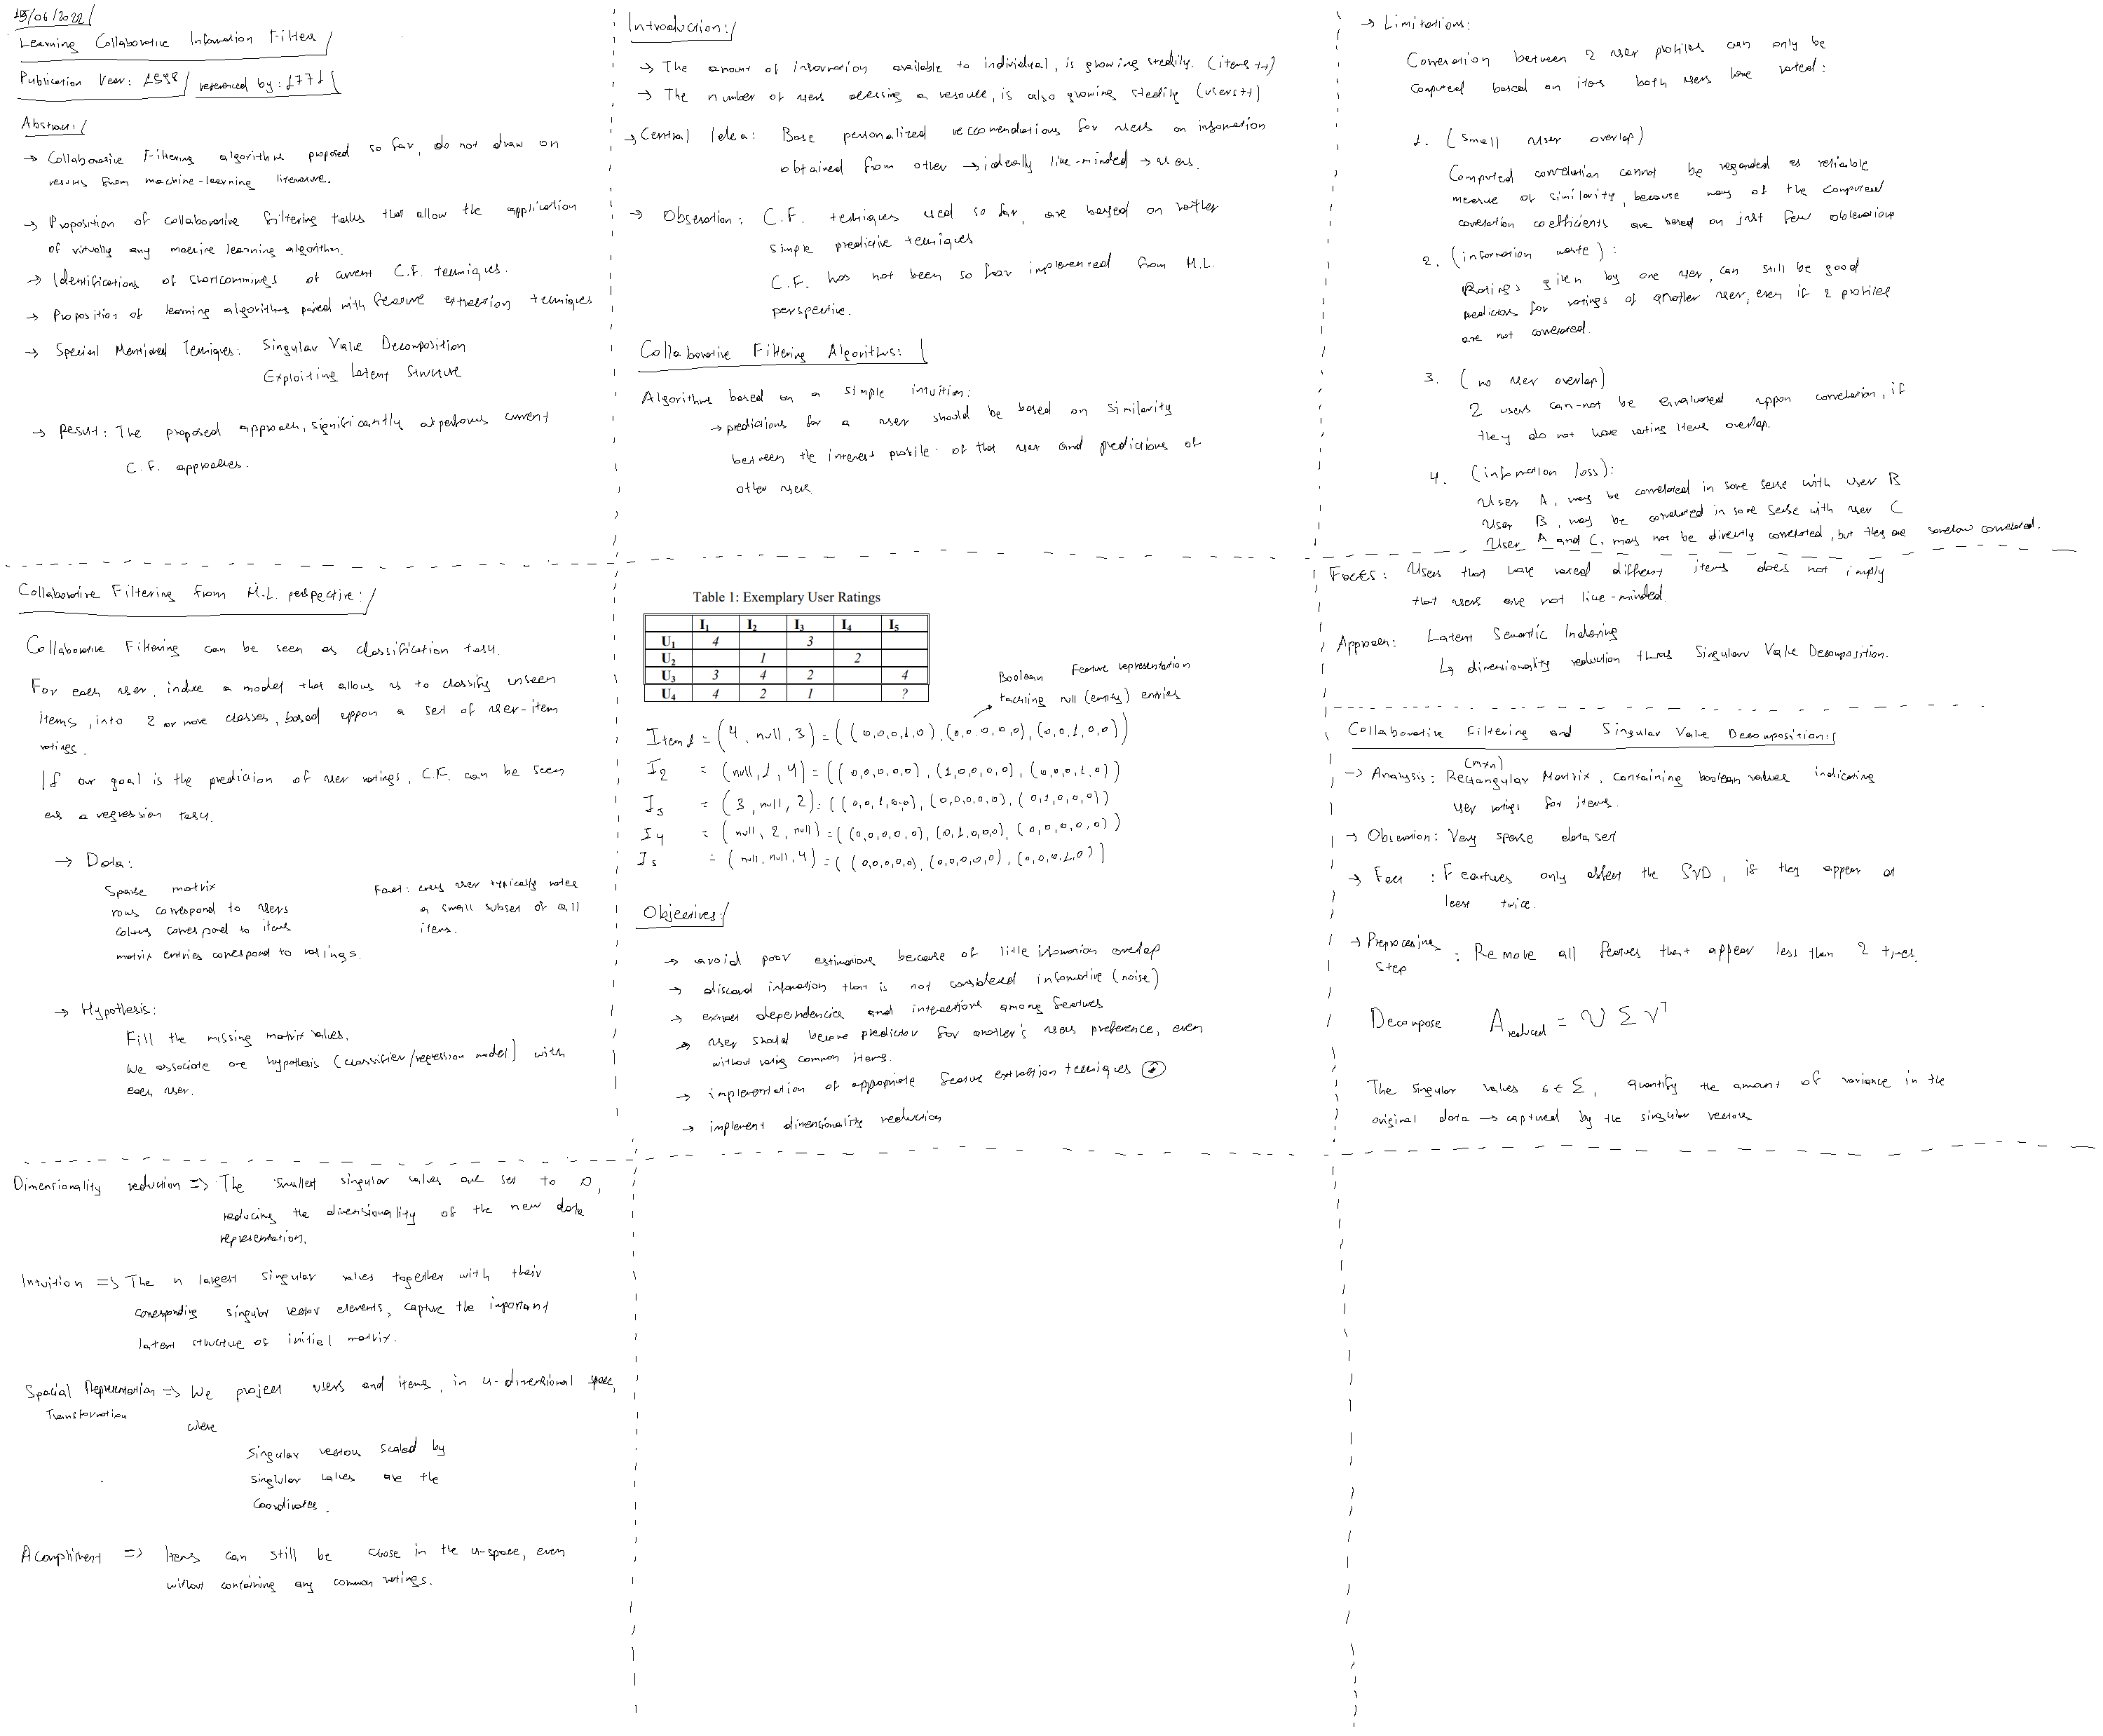 15/06/2022
Learning Collaborative Information Filters
Publication Year: 1998 referenced by: 1771
Abstract:
→ Collaborative Filtering algorithms proposed so far, do not draw on
results from machine-learning literature.
→ Proposition of collaborative filtering tasks that allow the application
of virtually any machine learning algorithm.
→ Identifications of shortcommings of current C.F. techniques.
→ Proposition of learning algorithms paired with feature extraction techniques
→ Special Mentioned Techniques: Singular Value Decomposition
Exploiting Latent Structure
→ Result: The proposed approach, significantly outperforms current
C.F. approaches.
Introduction:
→ The amount of information available to individual, is growing steadily. (items ++)
→ The number of users accessing a resource, is also growing steadily (users++)
→ Central Idea: Base personalized reccomendations for users on information
obtained from other → ideally like-minded → users.
→ Observation: C.F. techniques used so far, are based on rather
simple predictive techniques
C.F. has not been so far implemented from M.L.
perspective.
Collaborative Filtering Algorithms:
Algorithms based on a simple intuition:
→ predictions for a user should be based on similarity
between the interest profile of that user and predictions of
other users
→ Limitations:
Correlation between 2 user profiles can only be
computed based on items both users have rated:
1. (small user overlap)
Computed correlation cannot be regarded as reliable
measure of similarity, because many of the computed
correlation coefficients are based on just few observations
2. (information waste):
Ratings given by one user, can still be good
predictors for ratings of another user, even if 2 profiles
are not correlated.
3. (no user overlap)
2 users can-not be evaluated uppon correlation, if
they do not have rating items overlap.
4. (information loss):
User A, may be correlated in some sense with user B
User B, may be correlated in some sense with user C
User A and C, may not be directly correlated, but they are somehow correlated.
Collaborative Filtering from M.L. perspective:
Collaborative Filtering can be seen as classification task.
For each user, induce a model that allows us to classify unseen
items, into 2 or more classes, based uppon a set of user-item
ratings.
If our goal is the prediction of user ratings, C.F. can be seen
as a regression task.
→ Data:
Sparse matrix
rows correspond to users
columns correspond to items
matrix entries correspond to ratings.
Fact: every user typically rates
a small subset of all
items.
→ Hypothesis:
Fill the missing matrix values.
We associate one hypothesis (classifier/regression model) with
each user.
Table 1: Exemplary User Ratings
I1 I2 I3 I4 I5
U1 4 3
U2 1 2
U3 3 4 2 4
U4 4 2 1 ?
Boolean feature representation
tackling null (empty) entries
Item1 = (4, null, 3) = ((0,0,0,1,0), (0,0,0,0,0), (0,0,1,0,0))
I2 = (null, 1, 4) = ((0,0,0,0,0), (1,0,0,0,0), (0,0,0,1,0))
I3 = (3, null, 2) = ((0,0,1,0,0), (0,0,0,0,0), (0,1,0,0,0))
I4 = (null, 2, null) = ((0,0,0,0,0), (0,1,0,0,0), (0,0,0,0,0))
I5 = (null, null, 4) = ((0,0,0,0,0), (0,0,0,0,0), (0,0,0,1,0))
Objectives:
→ avoid poor estimations because of little information overlap
→ discard information that is not considered informative (noise)
→ extract dependencies and interactions among features
→ user should become predictor for another's users preference, even
without rating common items.
→ implementation of appropriate feature extraction techniques
→ implement dimensionality reduction
Facts: Users that have rated different items does not imply
that users are not like-minded.
Approach: Latent Semantic Indexing
↳ dimensionality reduction thus Singular Value Decomposition.
Collaborative Filtering and Singular Value Decomposition:
(m×n)
→ Analysis: Rectangular Matrix, containing boolean values indicating
user ratings for items.
→ Observation: Very sparse data set
→ Fact : Features only affect the SVD, if they appear at
least twice.
→ Preprocessing : Remove all features that appear less than 2 times.
Step
Decompose A reduced = U Σ V^T
The singular values σ ∈ Σ, quantify the amount of variance in the
original data → captured by the singular vectors
Dimensionality reduction => The smallest singular values are set to 0,
reducing the dimensionality of the new data
representation.
Intuition => The n largest singular values together with their
corresponding singular vector elements, capture the important
latent structure of initial matrix.
Spacial Representation => We project users and items, in k-dimensional space,
Transformation
where
Singular vectors scaled by
singlular values are the
Coordinates.
Acompliment => Items can still be close in the k-space, even
without containing any common ratings.